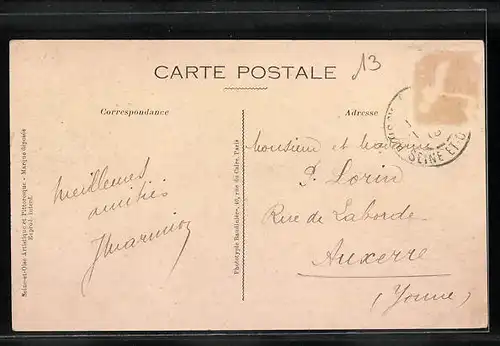 13
CARTE POSTALE
Correspondance
Adresse
Seine-et-Oise Artistique et Pittoresque - Marque déposée
Reprod. interd.
Phototypie Bandinière, 10, rue du Caire, Paris
SEINE ET O
Meilleures
amitiés
Monsieur et Madame
P. Lorin
Rue de Laborde
Auxerre
(Yonne)